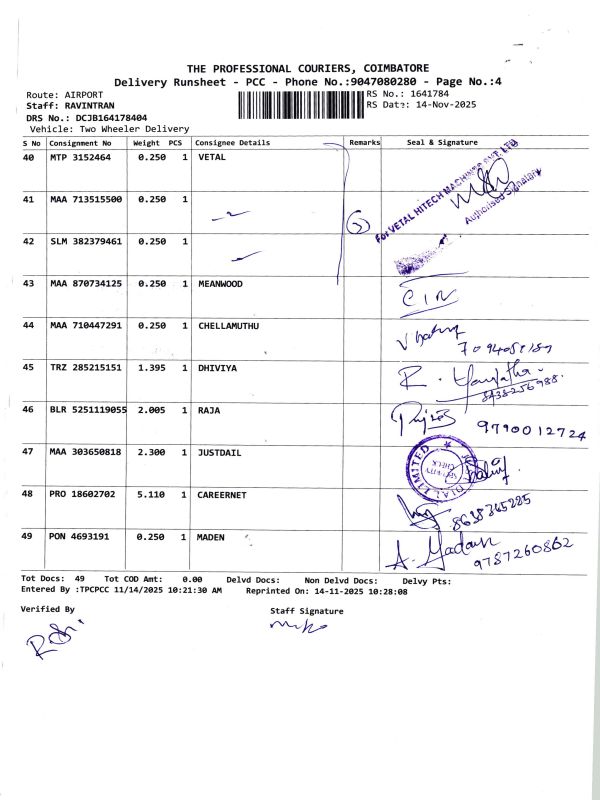 THE PROFESSIONAL COURIERS, COIMBATORE
Delivery Runsheet - PCC - Phone No.:9047080280 - Page No.:4
Route: AIRPORT
RS No.: 1641784
Staff: RAVINTRAN
RS Date: 14-Nov-2025
DRS No.: DCJB164178404
Vehicle: Two Wheeler Delivery
S No Consignment No Weight PCS Consignee Details Remarks Seal & Signature
40 MTP 3152464 0.250 1 VETAL
For VETAL HITECH MACHINES PVT. LTD
Authorised Signatory
41 MAA 713515500 0.250 1
3
42 SLM 382379461 0.250 1
43 MAA 870734125 0.250 1 MEANWOOD
44 MAA 710447291 0.250 1 CHELLAMUTHU
45 TRZ 285215151 1.395 1 DHIVIYA
R.
46 BLR 5251119055 2.005 1 RAJA
9790012724
47 MAA 303650818 2.300 1 JUSTDAIL
DIAL LIMITED
SECURITY CHECK
48 PRO 18602702 5.110 1 CAREERNET
49 PON 4693191 0.250 1 MADEN
9787260862
Tot Docs: 49 Tot COD Amt: 0.00 Delvd Docs: Non Delvd Docs: Delvy Pts:
Entered By :TPCPCC 11/14/2025 10:21:30 AM Reprinted On: 14-11-2025 10:28:08
Verified By Staff Signature